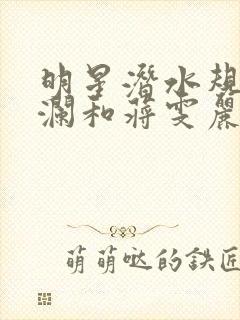 明星潛水規
瀾和蔣雯麗
萌萌哒的鉄匠